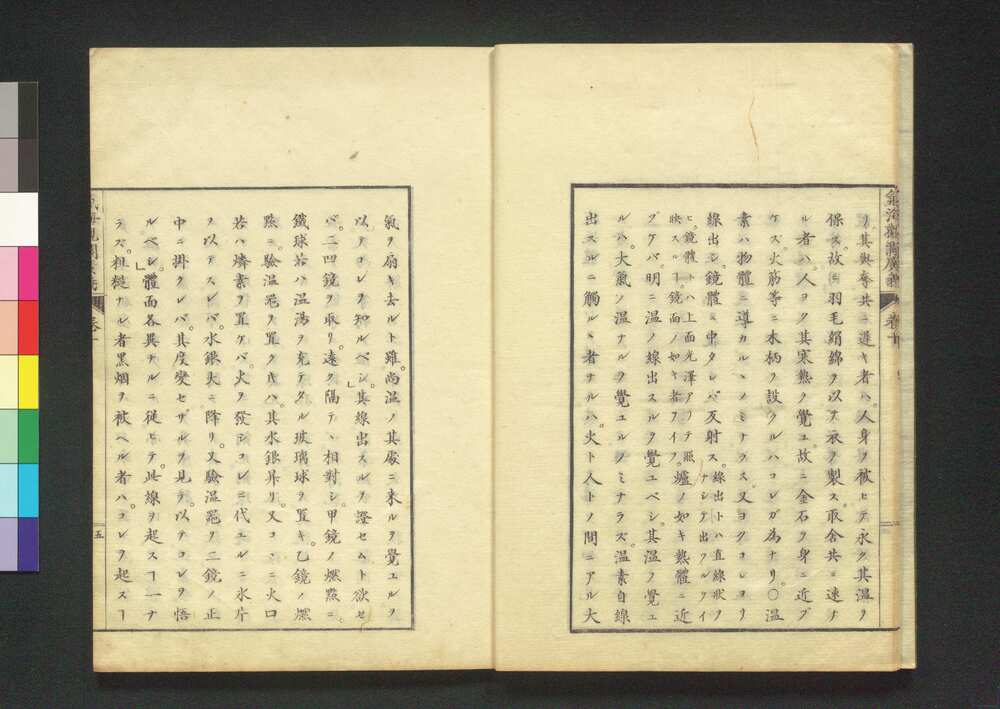 リ。其與奪共ニ遅キ者ハ。人身ヲ被ヒテ永ク其温ヲ
保ス。故ニ羽毛絹綿ヲ以テ衣ヲ製ス。取舍共ニ速ナ
ル者ハ。人ヨク其寒熱ヲ覺ユ。故ニ金石ヲ身ニ近ヅ
ケズ。火筋等ニ木柄ヲ設クルハコレガ為ナリ。〇温
素ハ物體ニ導カルヽノミナラズ。又ヨクコレヨリ
線出シ。鏡體ニ中タレバ反射ス。線出トハ直線状ヲナシテ出ツルヲイ
ヒ。鏡體トハ上面光澤アツテ照映スルヿ。鏡面ノ如キ者ヲイフ。爐ノ如キ熱體ニ近
ヅケバ。明ニ温ノ線出スルヲ覺ユベシ。其温ヲ覺ユ
ルハ。大氣ノ温ナルヲ覺ユルノミナラズ。温素自線
出スルニ觸ルヽ者ナルハ。火ト人トノ間ニアル大
氣ヲ扇キ去ルト雖。尚温ノ其處ニ来ルヲ覺ユルヲ
以テコレヲ知ルベシ。」其線出スルヲ證セムト欲セ
バ。二凹鏡ヲ取リ。遠ク隔テヽ相對シ。甲鏡ノ燃點ニ。
鐵球若ハ温湯ヲ充テタル玻璃球ヲ置キ。乙鏡ノ燃
點ニ。驗温器ヲ置クキハ。其水銀昇リ。又コヽニ火口
若ハ燐素ヲ置ケバ。火ヲ發シ。コレニ代ユルニ氷片
ヲ以テスレバ。水銀大ニ降リ。又驗温器ヲ二鏡ノ正
中ニ掛クレバ。其度變セザルヲ見ラ。以テコレヲ悟
ルベシ。」體面各異ナルニ從ヒテ。此線ヲ起スヿ一ナ
ラズ。粗糙ナル者黒烟ヲ被ヘル者ハ。コレヲ起スヿ
五